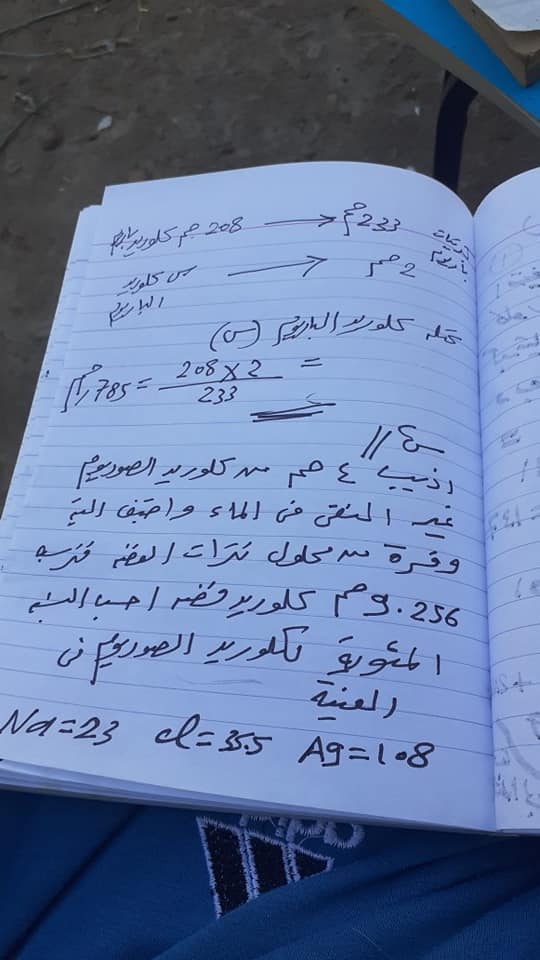 208 جم كلوريد باريوم ← 233 جم كبريتات باريوم
س كلوريد الباريوم ← 2 جم
كتله كلوريد الباريوم (س)
= 208 × 2 / 233 = 785ر1 جم
س٤ //
اذيب ٤ جم من كلوريد الصوديوم
غير النقى فى الماء واضيف اليه
وفرة من محلول نترات الفضه فترسب
9.256 جم كلوريد فضه احسب النسبه
المئوية لكلوريد الصوديوم فى
العنية
Na=23 Cl=35.5 Ag=108
adidas